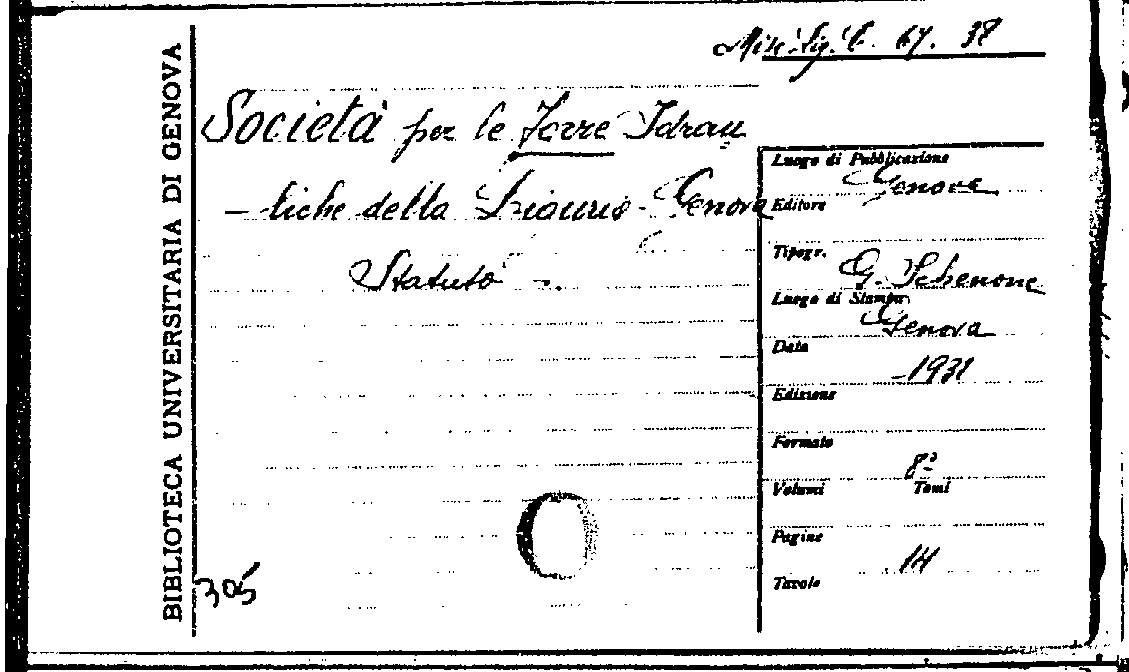 Misc. Lig. C. 67. 38
BIBLIOTECA UNIVERSITARIA DI GENOVA
Società per le Forze Idrau
– liche della Liguria - Genova
Statuto -.
305
Luogo di Pubblicazione
Genova
Editore
Tipogr.
G. Schenone
Luogo di Stampa
Genova
Data
1931
Edizione
Formato
8º
Volumi Tomi
Pagine
14
Tavole